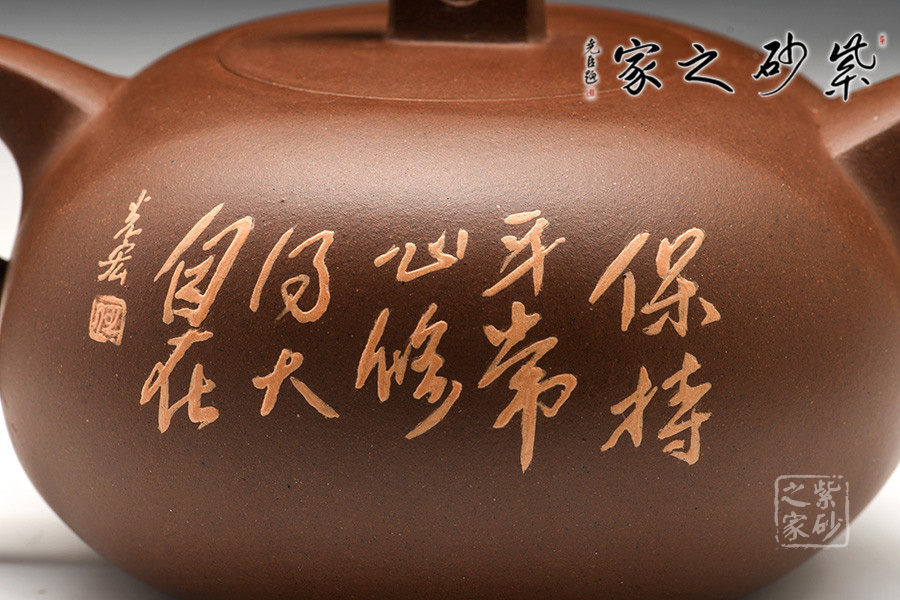 紫砂之家
保持
平常
心修
得大
自在
光宏
紫砂
之家